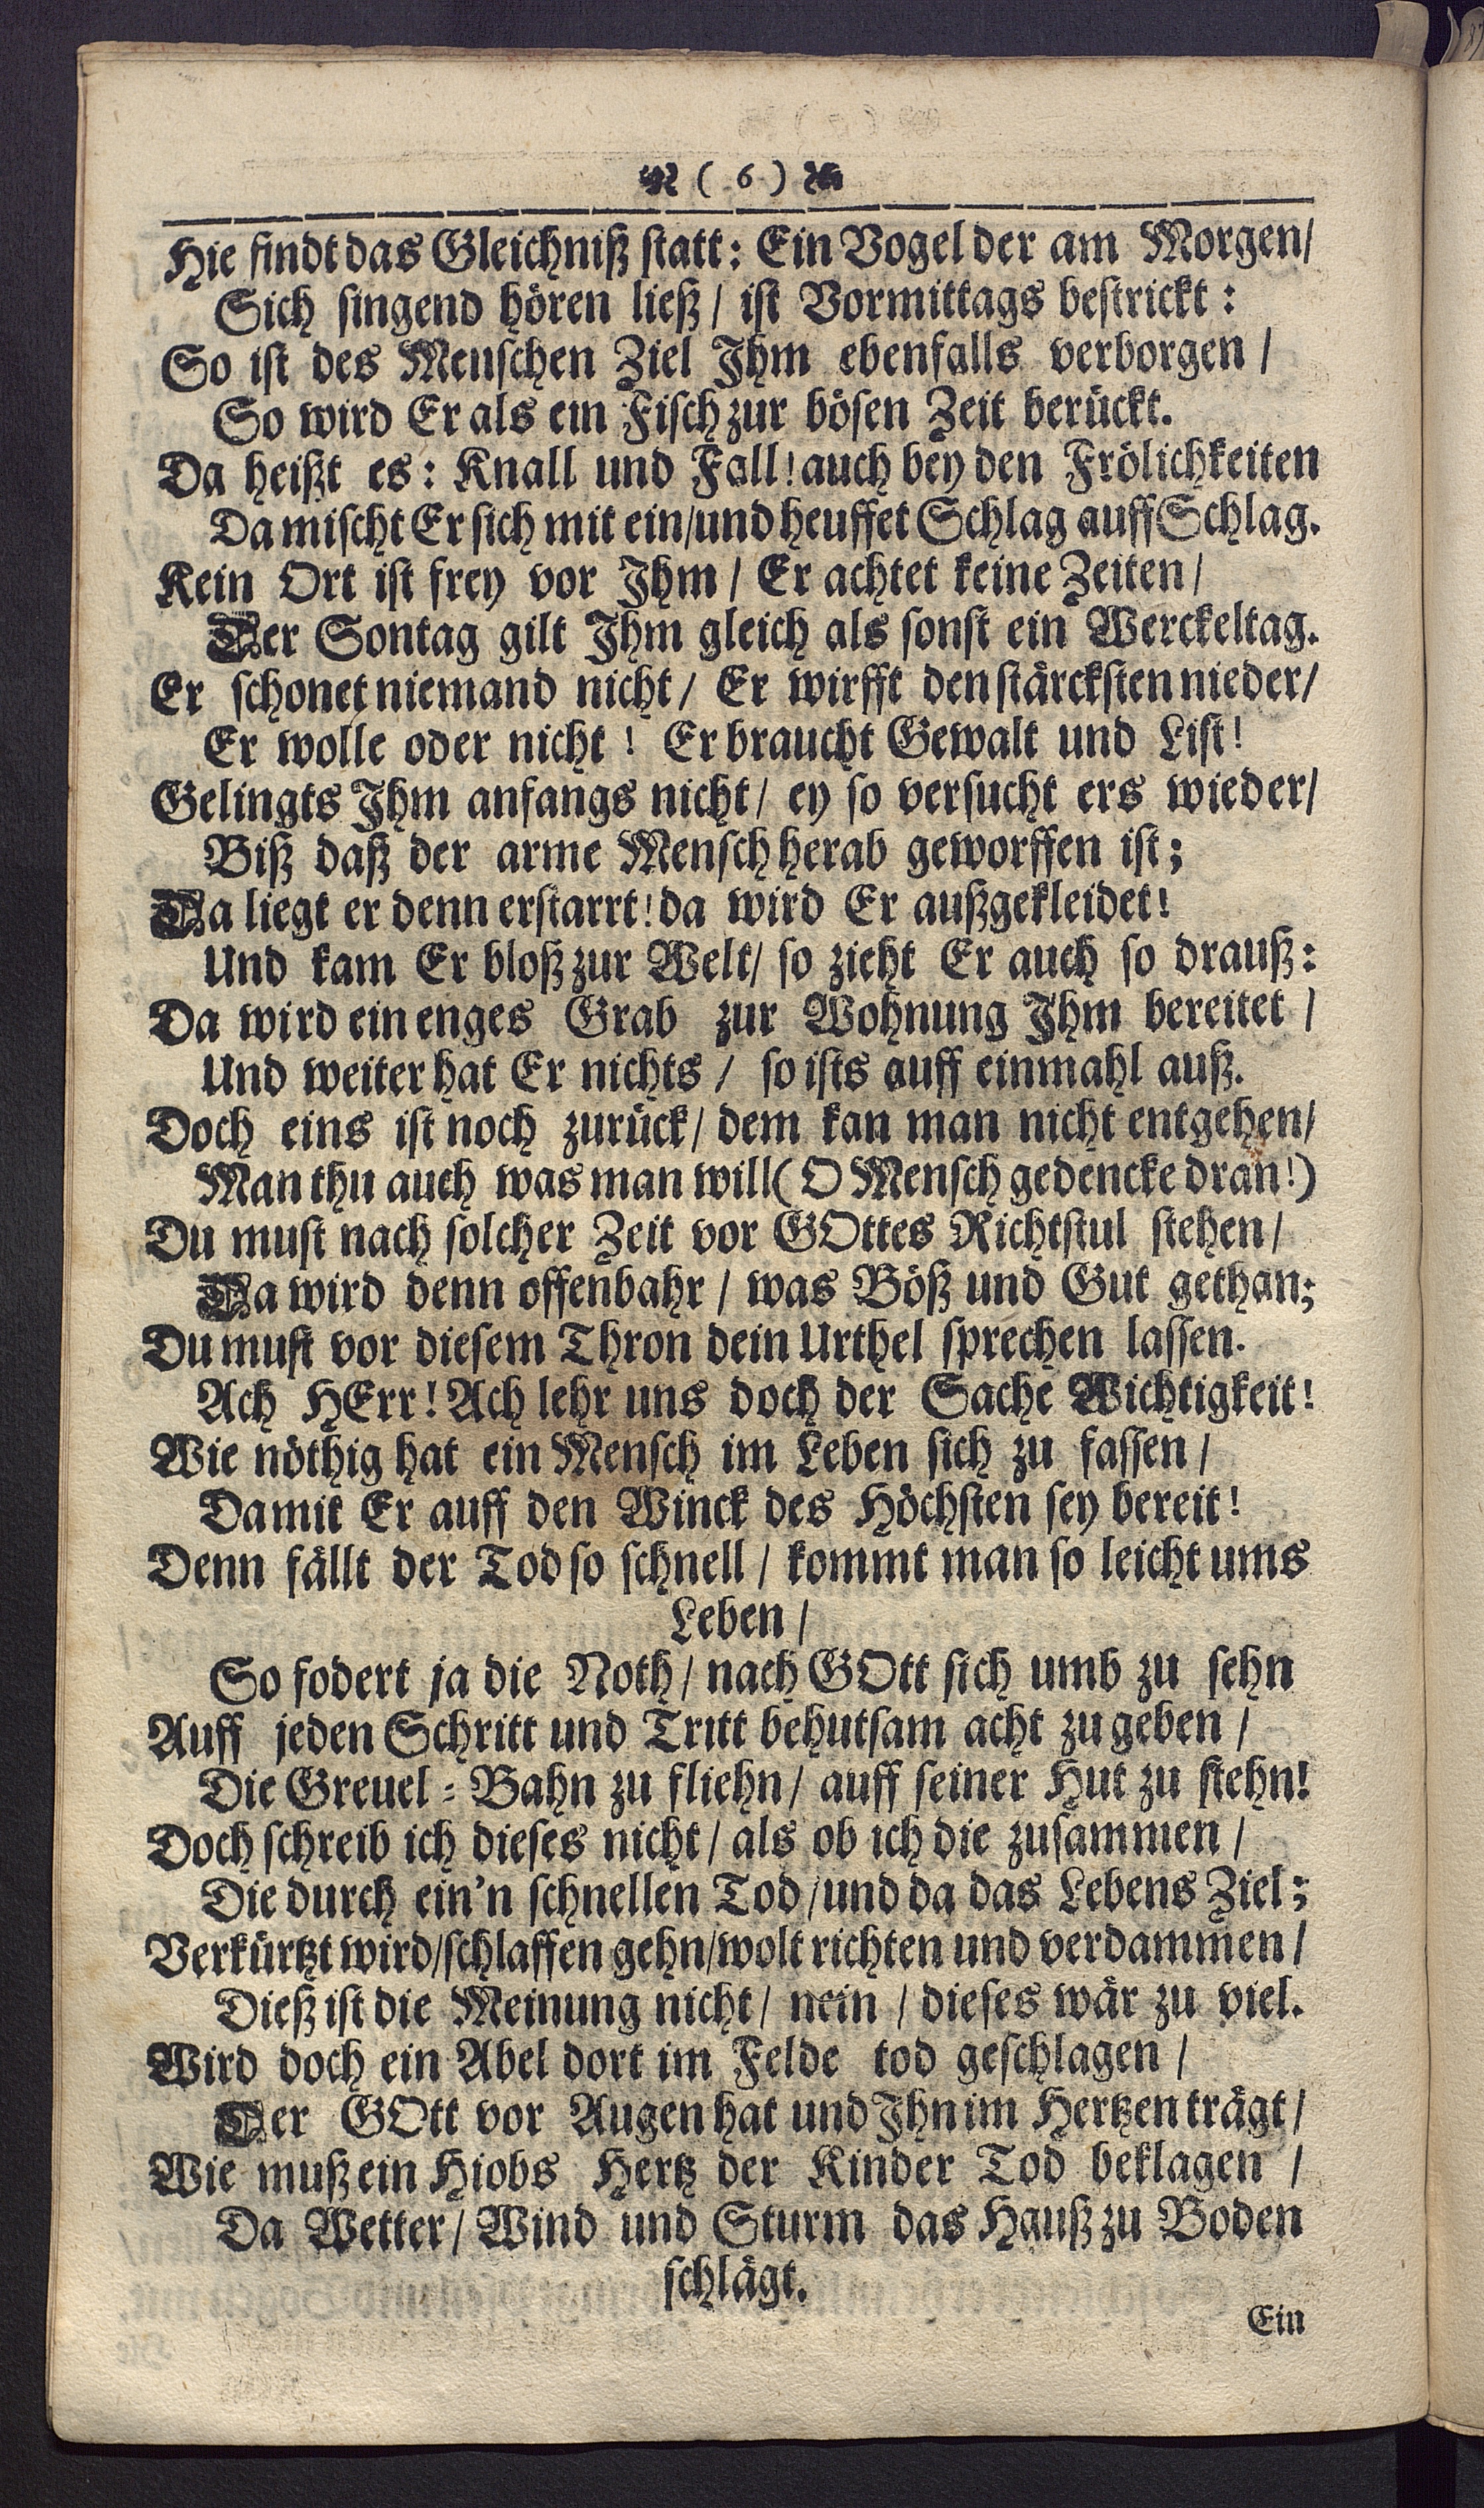 ( 6 )
Hie findt das Gleichniß statt: Ein Vogel der am Morgen/
Sich singend hören ließ / ist Vormittags bestrickt:
So ist des Menschen Ziel Ihm ebenfalls verborgen /
So wird Er als ein Fisch zur bösen Zeit berückt.
Da heißt es: Knall und Fall! auch bey den Frölichkeiten
Da mischt Er sich mit ein/und heuffet Schlag auff Schlag.
Kein Ort ist frey vor Ihm / Er achtet keine Zeiten /
Der Sontag gilt Ihm gleich als sonst ein Werckeltag.
Er schonet niemand nicht / Er wirfft den stärcksten nieder/
Er wolle oder nicht! Er braucht Gewalt und List!
Gelingts Ihm anfangs nicht / ey so versucht ers wieder/
Biß daß der arme Mensch herab geworffen ist;
Da liegt er denn erstarrt! da wird Er außgekleidet!
Und kam Er bloß zur Welt / so zieht Er auch so drauß:
Da wird ein enges Grab zur Wohnung Ihm bereitet /
Und weiter hat Er nichts / so ists auff einmahl auß.
Doch eins ist noch zurück / dem kan man nicht entgehen/
Man thu auch was man will (O Mensch gedencke dran!)
Du must nach solcher Zeit vor GOttes Richtstul stehen /
Da wird denn offenbahr / was Böß und Gut gethan;
Du must vor diesem Thron dein Urthel sprechen lassen.
Ach HErr! Ach lehr uns doch der Sache Wichtigkeit!
Wie nöthig hat ein Mensch im Leben sich zu fassen /
Damit Er auff den Winck des Höchsten sey bereit!
Denn fällt der Tod so schnell / kommt man so leicht ums
Leben /
So fodert ja die Noth / nach GOtt sich umb zu sehn
Auff jeden Schritt und Tritt behutsam acht zu geben /
Die Greuel-Bahn zu fliehn / auff seiner Hut zu stehn!
Doch schreib ich dieses nicht / als ob ich die zusammen /
Die durch ein'n schnellen Tod / und da das Lebens Ziel;
Verkürtzt wird/schlaffen gehn/wolt richten und verdammen /
Dieß ist die Meinung nicht / nein / dieses wär zu viel.
Wird doch ein Abel dort im Felde tod geschlagen /
Der GOtt vor Augen hat und Ihn im Hertzen trägt /
Wie muß ein Hiobs Hertz der Kinder Tod beklagen /
Da Wetter / Wind und Sturm das Hauß zu Boden
schlägt.
Ein